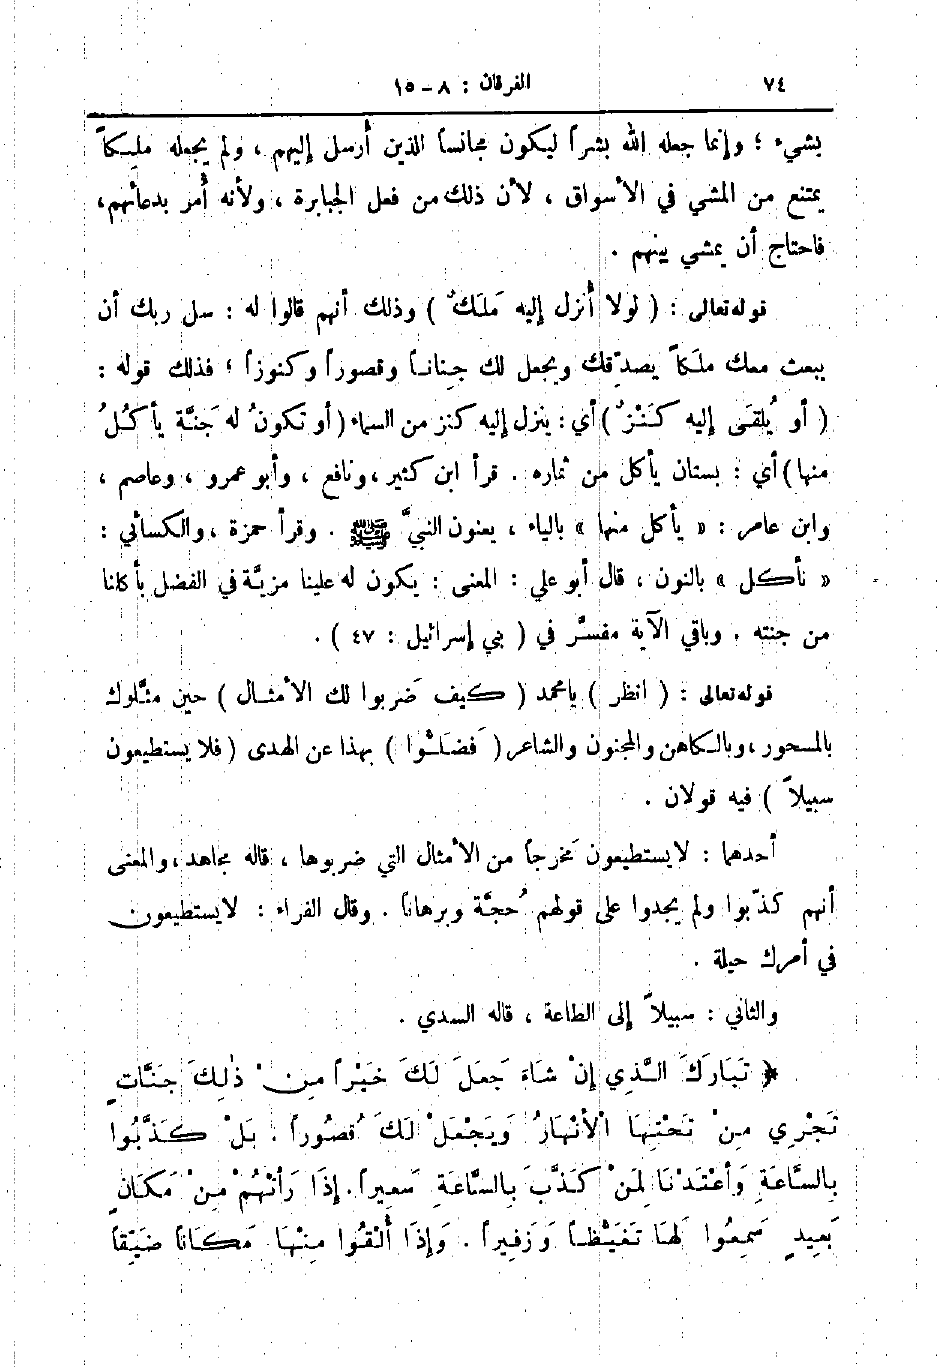 ٧٤
الفرقان : ٨ - ١٥
بشيء ؛ وإنما جعله الله بشراً ليكون مجانساً الذين أرسل إليهم ، ولم يجعله ملِكاً
يمتنع من المشي في الأسواق ، لأن ذلك من فعل الجبابرة ، ولأنه أُمر بدعائهم،
فاحتاج أن يمشي بينهم .
قوله تعالى : ( لولا أُنزل إليه مَلَكٌ ) وذلك أنهم قالوا له : سل ربك أن
يبعث معك ملَكاً يصدِّقك ويجعل لك جِناناً وقصوراً وكنوزاً ؛ فذلك قوله :
( أو يُلقَى إليه كَنْزٌ ) أي : ينزل إليه كنز من السماء ( أو تكونُ له جَنَّة يأكُلُ
منها ) أي : بستان يأكل من ثماره . قرأ ابن كثير ، ونافع ، وأبو عمرو ، وعاصم ،
وابن عامر : « يأكل منها » بالياء ، يعنون النبيَّ ﷺ . وقرأ حمزة ، والكسائي :
« نأكل » بالنون ، قال أبو علي : المعنى : يكون له علينا مزيَّة في الفضل بأكلنا
من جنته . وباقي الآية مفسَّر في ( بني إسرائيل : ٤٧ ) .
قوله تعالى : ( انظر ) يا محمد ( كيف ضَربوا لك الأمثال ) حين مثَّلوك
بالمسحور ، وبالكاهن والمجنون والشاعر ( فضَلُّوا ) بهذا عن الهدى ( فلا يستطيعون
سبيلاً ) فيه قولان .
أحدهما : لا يستطيعون مَخرجاً من الأمثال التي ضربوها ، قاله مجاهد ، والمعنى
أنهم كذَّبوا ولم يجدوا على قولهم حُجَّة وبرهاناً . وقال الفراء : لا يستطيعون
في أمرك حيلة .
والثاني : سبيلاً إلى الطاعة ، قاله السدي .
﴿ تَبَارَكَ الَّذِي إِنْ شَاءَ جَعَلَ لَكَ خَيْراً مِنْ ذٰلِكَ جَنَّاتٍ
تَجْرِي مِنْ تَحْتِهَا الْأَنْهَارُ وَيَجْعَلْ لَكَ قُصُوراً . بَلْ كَذَّبُوا
بِالسَّاعَةِ وَأَعْتَدْنَا لِمَنْ كَذَّبَ بِالسَّاعَةِ سَعِيراً . إِذَا رَأَتْهُمْ مِنْ مَكَانٍ
بَعِيدٍ سَمِعُوا لَهَا تَغَيُّظاً وَزَفِيراً . وَإِذَا أُلْقُوا مِنْهَا مَكَاناً ضَيِّقاً